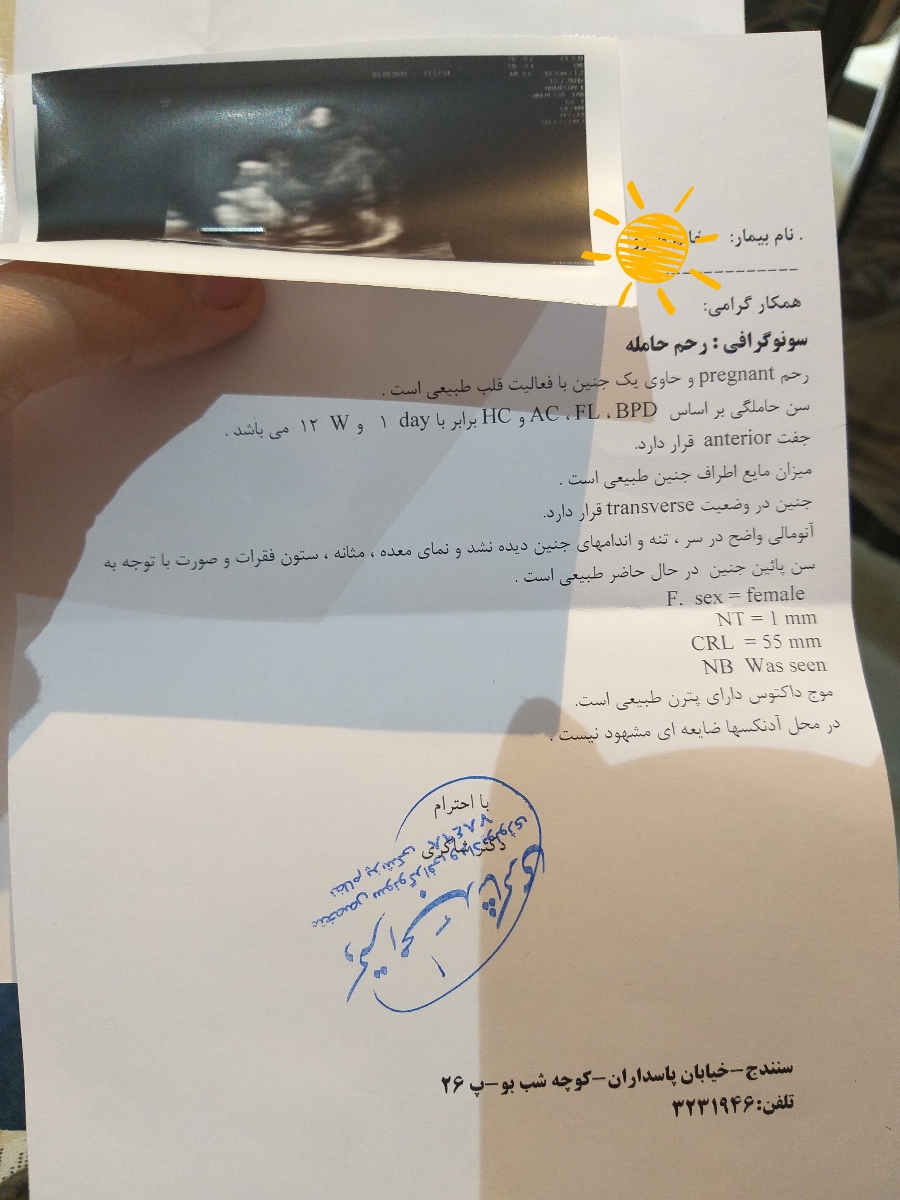 . نام بیمار:
--------------
همکار گرامی:
سونوگرافی : رحم حامله
رحم pregnant و حاوی یک جنین با فعالیت قلب طبیعی است .
سن حاملگی بر اساس AC ، FL ، BPD و HC برابر با 1 day و ۱۲ W می باشد .
جفت anterior قرار دارد.
میزان مایع اطراف جنین طبیعی است .
جنین در وضعیت transverse قرار دارد.
آنومالی واضح در سر ، تنه و اندامهای جنین دیده نشد و نمای معده ، مثانه ، ستون فقرات و صورت با توجه به
سن پائین جنین در حال حاضر طبیعی است .
F. sex = female
NT = 1 mm
CRL = 55 mm
NB Was seen
موج داکتوس دارای پترن طبیعی است.
در محل آدنکسها ضایعه ای مشهود نیست .
با احترام
دکتر شاکری
متخصص سونوگرافی و رادیولوژی
نظام پزشکی
سنندج-خیابان پاسداران-کوچه شب بو-پ ۲۶
تلفن:۳۲۳۱۹۴۶